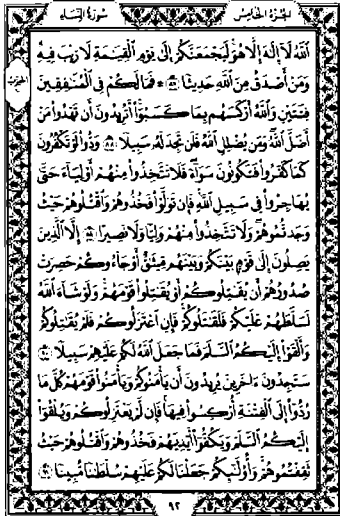 الجزء الخامس
سورة النساء
ٱللَّهُ لَآ إِلَٰهَ إِلَّا هُوَ لَيَجْمَعَنَّكُمْ إِلَىٰ يَوْمِ ٱلْقِيَٰمَةِ لَا رَيْبَ فِيهِ
وَمَنْ أَصْدَقُ مِنَ ٱللَّهِ حَدِيثًا ٨٧ ۞ فَمَا لَكُمْ فِى ٱلْمُنَٰفِقِينَ
فِئَتَيْنِ وَٱللَّهُ أَرْكَسَهُم بِمَا كَسَبُوٓا۟ أَتُرِيدُونَ أَن تَهْدُوا۟ مَنْ
أَضَلَّ ٱللَّهُ وَمَن يُضْلِلِ ٱللَّهُ فَلَن تَجِدَ لَهُۥ سَبِيلًا ٨٨ وَدُّوا۟ لَوْ تَكْفُرُونَ
كَمَا كَفَرُوا۟ فَتَكُونُونَ سَوَآءً فَلَا تَتَّخِذُوا۟ مِنْهُمْ أَوْلِيَآءَ حَتَّىٰ
يُهَاجِرُوا۟ فِى سَبِيلِ ٱللَّهِ فَإِن تَوَلَّوْا۟ فَخُذُوهُمْ وَٱقْتُلُوهُمْ حَيْثُ
وَجَدتُّمُوهُمْ وَلَا تَتَّخِذُوا۟ مِنْهُمْ وَلِيًّا وَلَا نَصِيرًا ٨٩ إِلَّا ٱلَّذِينَ
يَصِلُونَ إِلَىٰ قَوْمٍۭ بَيْنَكُمْ وَبَيْنَهُم مِّيثَٰقٌ أَوْ جَآءُوكُمْ حَصِرَتْ
صُدُورُهُمْ أَن يُقَٰتِلُوكُمْ أَوْ يُقَٰتِلُوا۟ قَوْمَهُمْ وَلَوْ شَآءَ ٱللَّهُ
لَسَلَّطَهُمْ عَلَيْكُمْ فَلَقَٰتَلُوكُمْ فَإِنِ ٱعْتَزَلُوكُمْ فَلَمْ يُقَٰتِلُوكُمْ
وَأَلْقَوْا۟ إِلَيْكُمُ ٱلسَّلَمَ فَمَا جَعَلَ ٱللَّهُ لَكُمْ عَلَيْهِمْ سَبِيلًا ٩٠
سَتَجِدُونَ ءَاخَرِينَ يُرِيدُونَ أَن يَأْمَنُوكُمْ وَيَأْمَنُوا۟ قَوْمَهُمْ كُلَّ مَا
رُدُّوٓا۟ إِلَى ٱلْفِتْنَةِ أُرْكِسُوا۟ فِيهَا فَإِن لَّمْ يَعْتَزِلُوكُمْ وَيُلْقُوٓا۟
إِلَيْكُمُ ٱلسَّلَمَ وَيَكُفُّوٓا۟ أَيْدِيَهُمْ فَخُذُوهُمْ وَٱقْتُلُوهُمْ حَيْثُ
ثَقِفْتُمُوهُمْ وَأُو۟لَٰٓئِكُمْ جَعَلْنَا لَكُمْ عَلَيْهِمْ سُلْطَٰنًا مُّبِينًا ٩١
٩٢